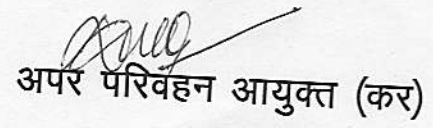 अपर परिवहन आयुक्त (कर)